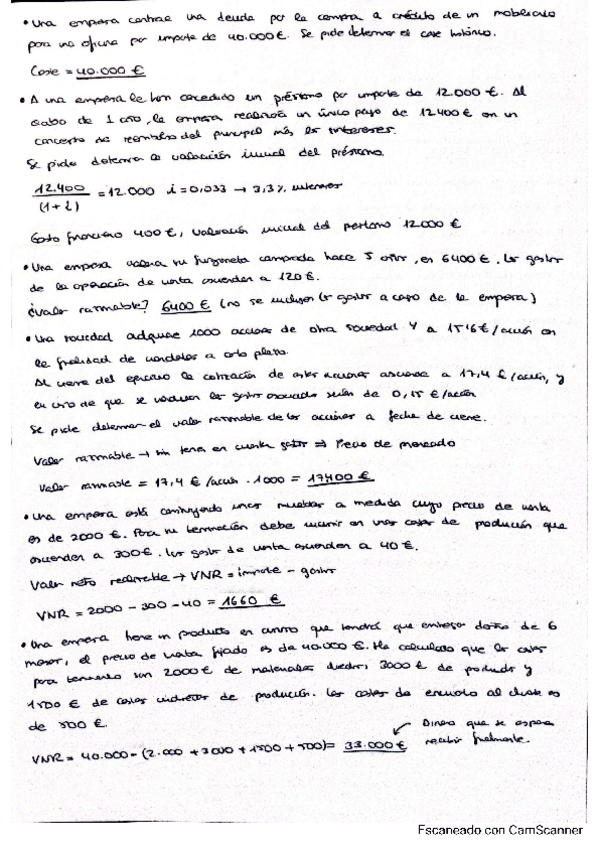 • Una empresa contrae una deuda por la compra a crédito de un mobiliario
para una oficina por importe de 40.000 €. Se pide determinar el coste histórico.
Coste = 40.000 €
• A una empresa le han concedido un préstamo por importe de 12.000 €. Al
cabo de 1 año, la empresa realizará un único pago de 12400 € en
concepto de reembolso del principal más los intereses.
Se pide determinar la valoración inicial del préstamo.
12.400 / (1+i) = 12.000 i = 0,033 → 3,3% intereses
Gasto financiero 400 €, valoración inicial del préstamo 12.000 €
• Una empresa valora su furgoneta comprada hace 5 años, en 6400 €. Los gastos
de la operación de venta ascienden a 120 €.
¿Valor razonable? 6400 € (no se incluyen los gastos a cargo de la empresa)
• Una sociedad adquiere 1000 acciones de otra sociedad Y a 15'16 €/acción con
la finalidad de venderlas a corto plazo.
Al cierre del ejercicio la cotización de estas acciones asciende a 17,4 €/acción, y
en caso de que se vendieran los gastos asociados serían de 0,15 €/acción
Se pide determinar el valor razonable de las acciones a fecha de cierre.
Valor razonable → sin tener en cuenta gastos ⇒ Precio de mercado
Valor razonable = 17,4 €/acción · 1000 = 17400 €
• Una empresa está construyendo unos muebles a medida cuyo precio de venta
es de 2000 €. Para su terminación debe incurrir en unos costes de producción que
ascienden a 300 €. Los gastos de venta ascienden a 40 €.
Valor neto realizable → VNR = importe - gastos
VNR = 2000 - 300 - 40 = 1660 €
• Una empresa tiene un producto en curso que tendrá que entregar dentro de 6
meses, el precio de venta fijado es de 40.000 €. Ha calculado que los costes
para terminarlo son 2000 € de materiales directos, 3000 € de producto y
1500 € de costes indirectos de producción. Los costes de enviarlo al cliente es
de 500 €.
VNR = 40.000 - (2.000 + 3000 + 1500 + 500) = 33.000 € ← Dinero que se espera
recibir finalmente.
Escaneado con CamScanner